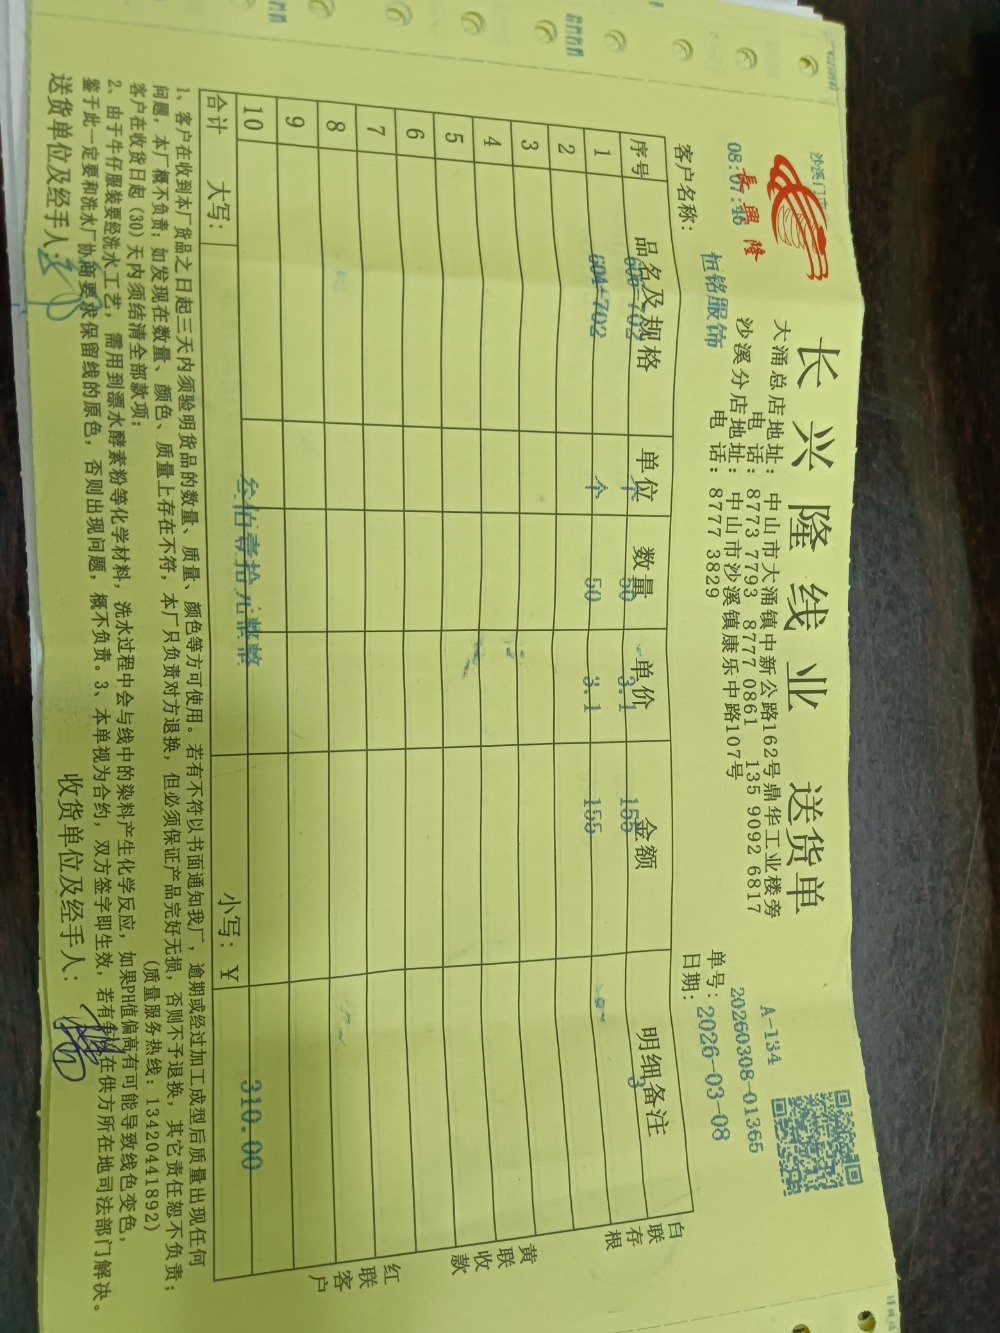 长兴隆线业 送货单
長興隆
沙溪门市
08:07:46
大涌总店地址：中山市大涌镇中新公路162号鼎华工业楼旁
电 话：8773 7793 8777 0861 135 9092 6817
沙溪分店地址：中山市沙溪镇康乐中路107号
电 话：8777 3829
A-134
单号：20260308-01365
日期：2026-03-08
客户名称：恒铭服饰
序号 品名及规格 单位 数量 单价 金额 明细备注
606-702 个 50 3.1 155 3
1 604-702 个 50 3.1 155
2
3
4
5
6
7
8
9
10 叁佰壹拾元整整 310.00
合计 大写： 小写：¥
白联存根
黄联收款
红联客户
1、客户在收到本厂货品之日起三天内须验明货品的数量、质量、颜色等方可使用。若有不符以书面通知我厂，逾期或经过加工成型后质量出现任何
问题，本厂概不负责；如发现在数量、颜色、质量上存在不符，本厂只负责对方退换，但必须保证产品完好无损，否则不予退换，其它责任恕不负责；
客户在收货日起（30）天内须结清全部款项； （质量服务热线：13420441892）
2、由于牛仔服装要经洗水工艺，需用到漂水酵素粉等化学材料，洗水过程中会与线中的染料产生化学反应，如果PH值偏高有可能导致线色变色，
鉴于此一定要和洗水厂协商要求保留线的原色，否则出现问题，概不负责。3、本单视为合约，双方签字即生效，若有争议在供方所在地司法部门解决。
送货单位及经手人： 收货单位及经手人：